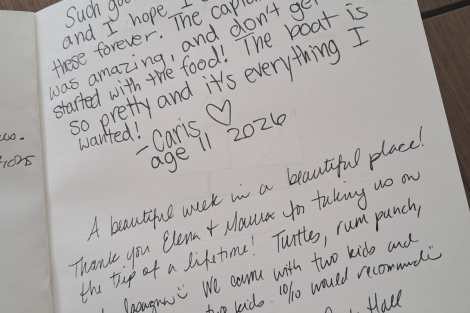 Such
and I hope I
these forever. The
was amazing, and don't get
started with the food! The boat is
so pretty and it's everything I
wanted! ♡
- Caris
age 11 2026
A beautiful week in a beautiful place!
Thank you Elena + Maura for taking us on
the trip of a lifetime! Turtles, rum punch,
We came with two kids and
two kids. 10/10 would recommend
Hall